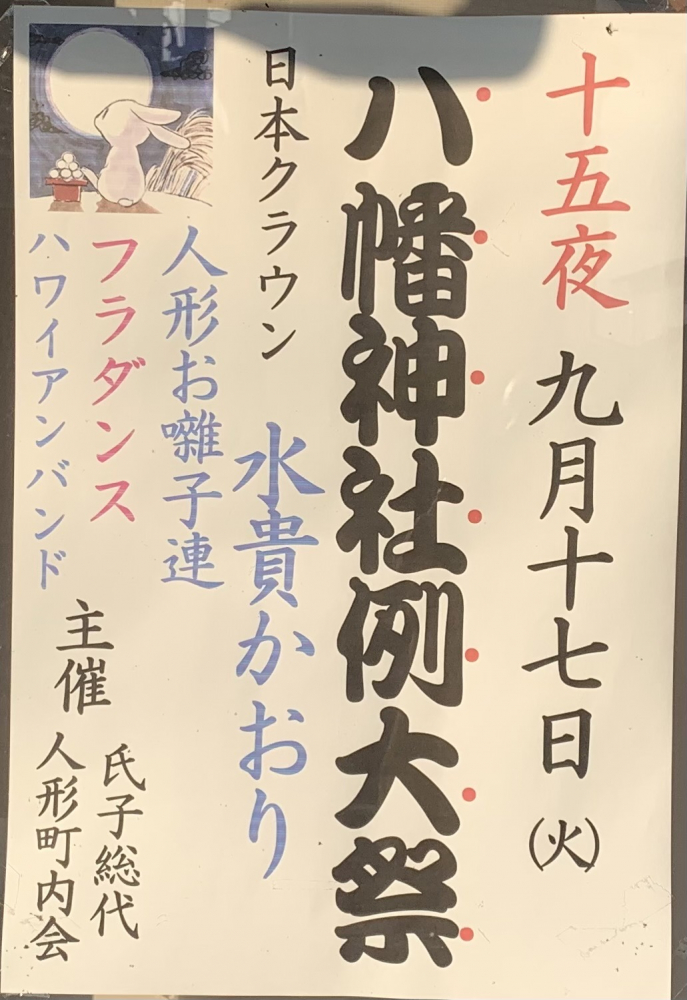 十五夜 九月十七日(火)
八幡神社例大祭
日本クラウン 水貴かおり
人形お囃子連
フラダンス
ハワイアンバンド
主催
氏子総代
人形町内会